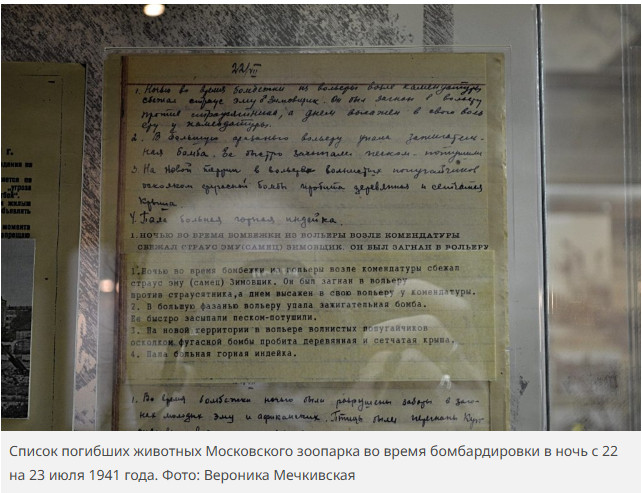 дания по
угроза
м жилью
объявлять
момента
22/VII
1. Ночью во время бомбежки из вольеры возле комендатуры
сбежал страус эму Зимовщик. Он был загнан в вольеру
против страусятника, а днем в свою воль
еру у комендатуры.
2. В большую фазанью вольеру упала зажигатель-
ная бомба. Ее быстро засыпали песком-потушили
3. На новой в вольере волнистых попугайчиков
осколком фугасной бомбы пробита деревянная и сетчатая
крыша.
4. Пала больная горная индейка.
1.НОЧЬЮ ВО ВРЕМЯ БОМБЕЖКИ ИЗ ВОЛЬЕРЫ ВОЗЛЕ КОМЕНДАТУРЫ
СБЕЖАЛ СТРАУС ЭМУ(САМЕЦ) ЗИМОВЩИК. ОН БЫЛ ЗАГНАН В ВОЛЬЕРУ
1.Ночью во время бомбежки из вольеры возле комендатуры сбежал
страус эму (самец) Зимовщик. Он был загнан в вольеру
против страусятника,а днем высажен в свою вольеру у комендатуры.
2. В большую фазанью вольеру упала зажигательная бомба.
Ее быстро засыпали песком-потушили.
3. На новой территории в вольере волнистых попугайчиков
осколком фугасной бомбы пробита деревянная и сетчатая крыша.
4. Пала больная горная индейка.
1. Во время бомбежки ночью были разрушены заборы в заго-
нах молодых эму и африканских. Птицы были
Список погибших животных Московского зоопарка во время бомбардировки в ночь с 22
на 23 июля 1941 года. Фото: Вероника Мечкивская